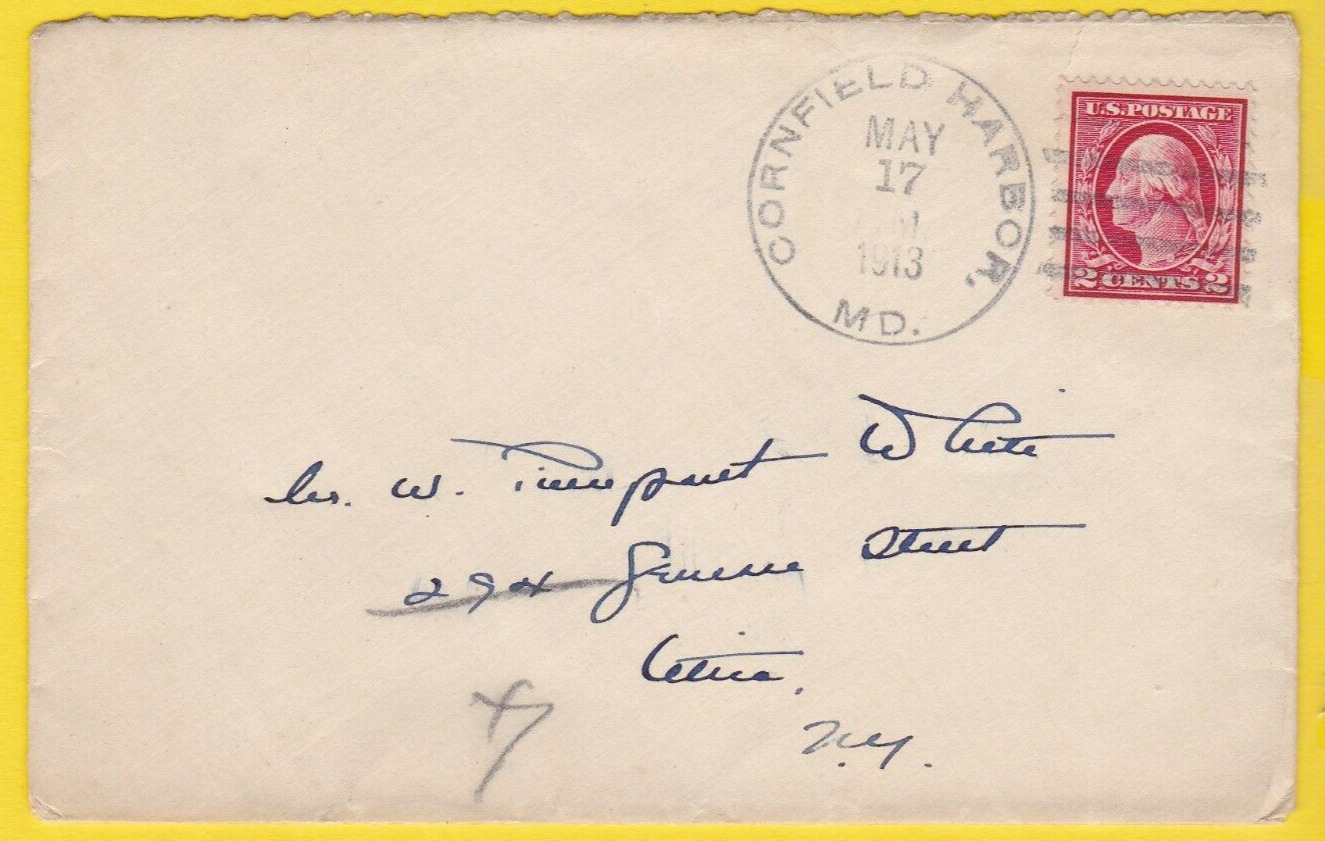 CORNFIELD HARBOR, MD.
MAY
17
1913
U.S.POSTAGE
2 CENTS 2
W. Pierrepont White
294 Genesee Street
Utica,
N.Y.